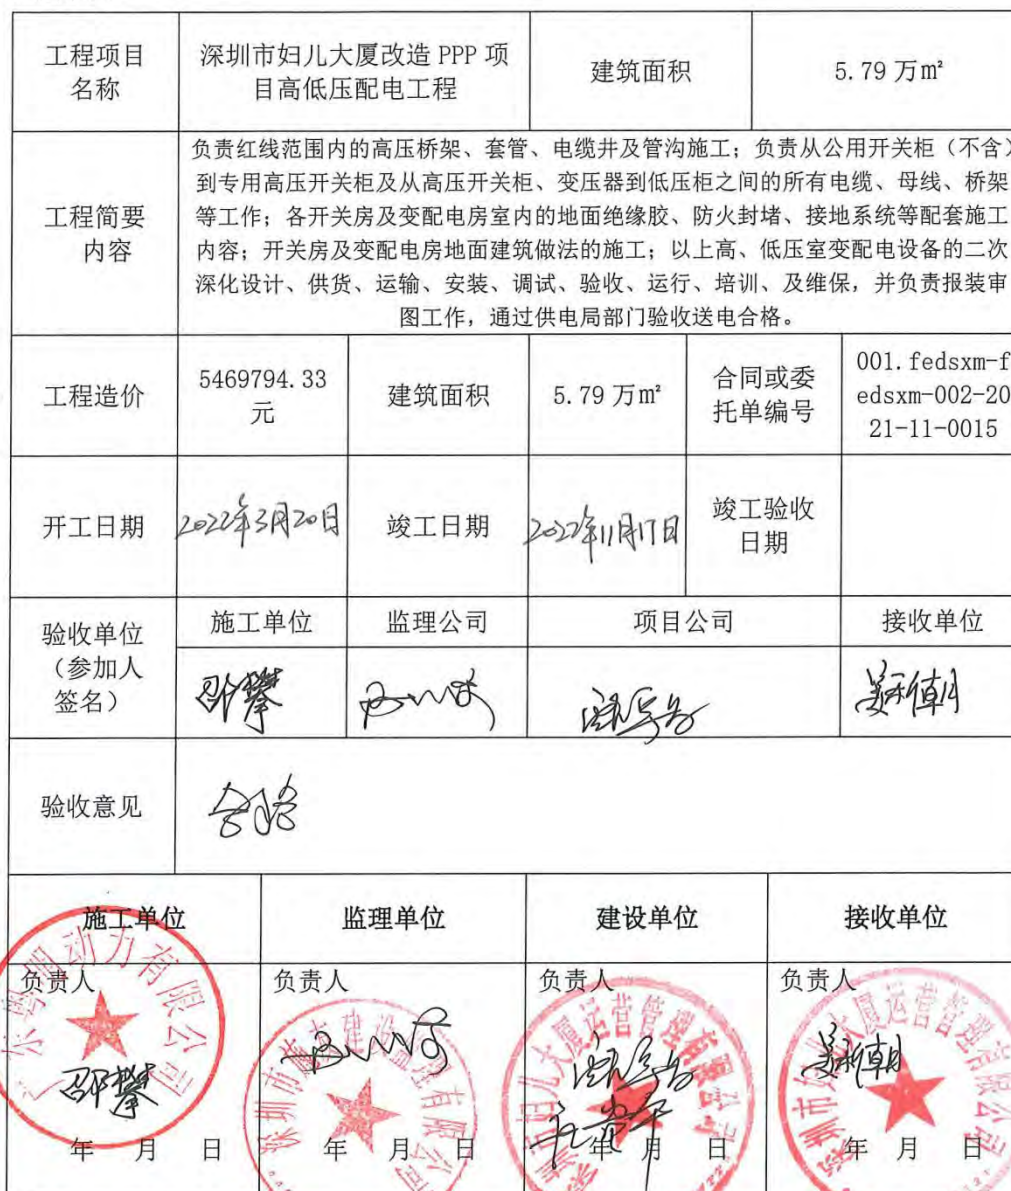 工程项目
名称
深圳市妇儿大厦改造 PPP 项
目高低压配电工程
建筑面积
5.79 万㎡
工程简要
内容
负责红线范围内的高压桥架、套管、电缆井及管沟施工；负责从公用开关柜（不含）
到专用高压开关柜及从高压开关柜、变压器到低压柜之间的所有电缆、母线、桥架
等工作；各开关房及变配电房室内的地面绝缘胶、防火封堵、接地系统等配套施工
内容；开关房及变配电房地面建筑做法的施工；以上高、低压室变配电设备的二次
深化设计、供货、运输、安装、调试、验收、运行、培训、及维保，并负责报装审
图工作，通过供电局部门验收送电合格。
工程造价
5469794.33
元
建筑面积
5.79 万㎡
合同或委
托单编号
001.fedsxm-f
edsxm-002-20
21-11-0015
开工日期
2022年3月20日
竣工日期
2022年11月17日
竣工验收
日期
验收单位
（参加人
签名）
施工单位
监理公司
项目公司
接收单位
邵攀
验收意见
合格
施工单位
监理单位
建设单位
接收单位
负责人
负责人
负责人
负责人
动力有限公司
建设监理有限公司
妇儿大厦运营管理有限公司
深圳市妇儿大厦运营管理有限公司
邵攀
年 月 日
年 月 日
年 月 日
年 月 日